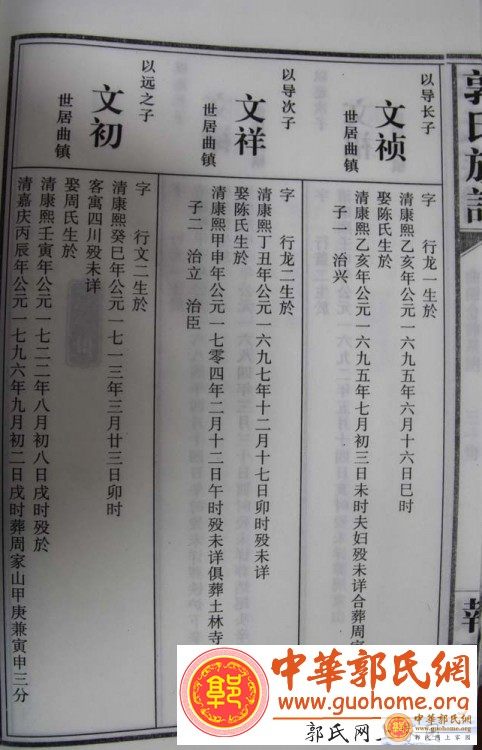 郭氏族譜
以导长子
文祯
世居曲镇
字 行龙一生於
清康熙乙亥年公元一六九五年六月十六日巳时
娶陈氏生於
清康熙乙亥年公元一六九五年七月初三日未时夫妇殁未详合葬周家
子一 治兴
以导次子
文祥
世居曲镇
字 行龙二生於
清康熙丁丑年公元一六九七年十二月十七日卯时殁未详
娶陈氏生於
清康熙甲申年公元一七零四年二月十二日午时殁未详俱葬土林寺
子二 治立 治臣
以远之子
文初
世居曲镇
字 行文二生於
清康熙癸巳年公元一七一三年三月廿三日卯时
客寓四川殁未详
娶周氏生於
清康熙壬寅年公元一七二二年八月初八日戌时殁於
清嘉庆丙辰年公元一七九六年九月初二日戌时葬周家山甲庚兼寅申三分
中華郭氏網
www.guohome.org
郭氏网上
中華郭氏網
www.guohome.org
郭氏网上家园